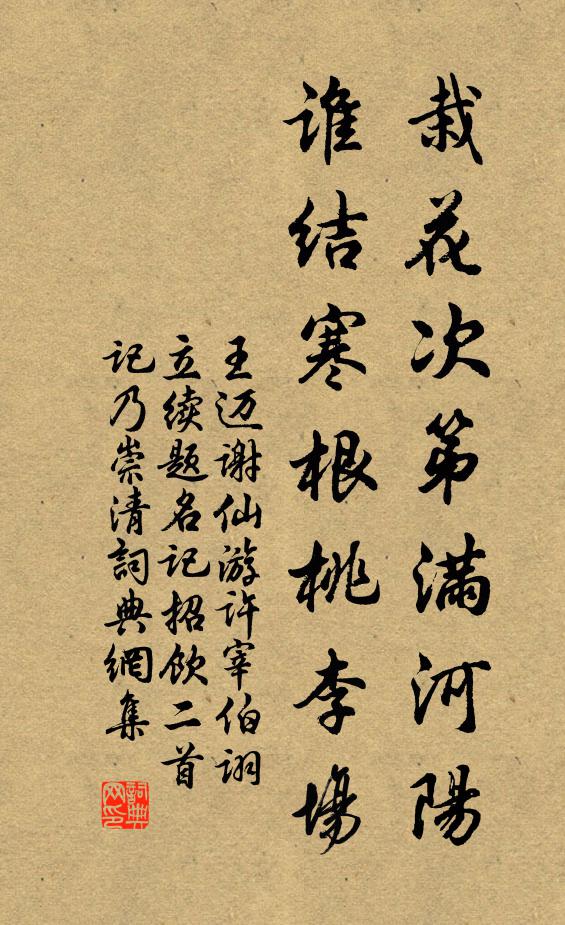 栽花次第满河陽
谁结寒根桃李塲
王迈谢仙游许宰伯诩
立续题名记招飲二首
记乃崇清詞典網集
詞典
网印